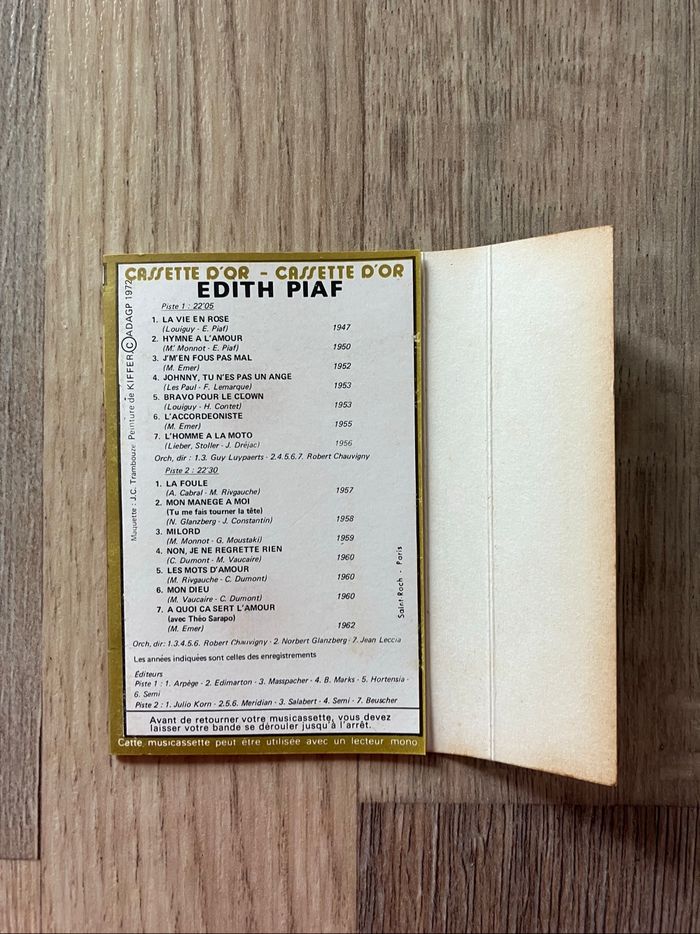 CASSETTE D'OR - CASSETTE D'OR
EDITH PIAF
Piste 1 : 22'05
1. LA VIE EN ROSE
(Louiguy - E. Piaf) 1947
2. HYMNE A L'AMOUR
(M. Monnot - E. Piaf) 1950
3. J'M'EN FOUS PAS MAL
(M. Emer) 1952
4. JOHNNY, TU N'ES PAS UN ANGE
(Les Paul - F. Lemarque) 1953
5. BRAVO POUR LE CLOWN
(Louiguy - H. Contet) 1953
6. L'ACCORDEONISTE
(M. Emer) 1955
7. L'HOMME A LA MOTO
(Lieber, Stoller - J. Dréjac) 1956
Orch, dir : 1.3. Guy Luypaerts - 2.4.5.6.7. Robert Chauvigny
Piste 2 : 22'30
1. LA FOULE
(A. Cabral - M. Rivgauche) 1957
2. MON MANEGE A MOI
(Tu me fais tourner la tête)
(N. Glanzberg - J. Constantin) 1958
3. MILORD
(M. Monnot - G. Moustaki) 1959
4. NON, JE NE REGRETTE RIEN
(C. Dumont - M. Vaucaire) 1960
5. LES MOTS D'AMOUR
(M. Rivgauche - C. Dumont) 1960
6. MON DIEU
(M. Vaucaire - C. Dumont) 1960
7. A QUOI CA SERT L'AMOUR
(avec Théo Sarapo)
(M. Emer) 1962
Orch, dir: 1.3.4.5.6. Robert Chauvigny - 2. Norbert Glanzberg - 7. Jean Leccia
Les années indiquées sont celles des enregistrements
Éditeurs
Piste 1 : 1. Arpège - 2. Edimarton - 3. Masspacher - 4. B. Marks - 5. Hortensia -
6. Semi
Piste 2 : 1. Julio Korn - 2.5.6. Meridian - 3. Salabert - 4. Semi - 7. Beuscher
Avant de retourner votre musicassette, vous devez
laisser votre bande se dérouler jusqu'à l'arrêt.
Cette musicassette peut être utilisée avec un lecteur mono
Maquette : J.C. Trambouze Peinture de KIFFER © ADAGP 1972
Saint-Roch - Paris